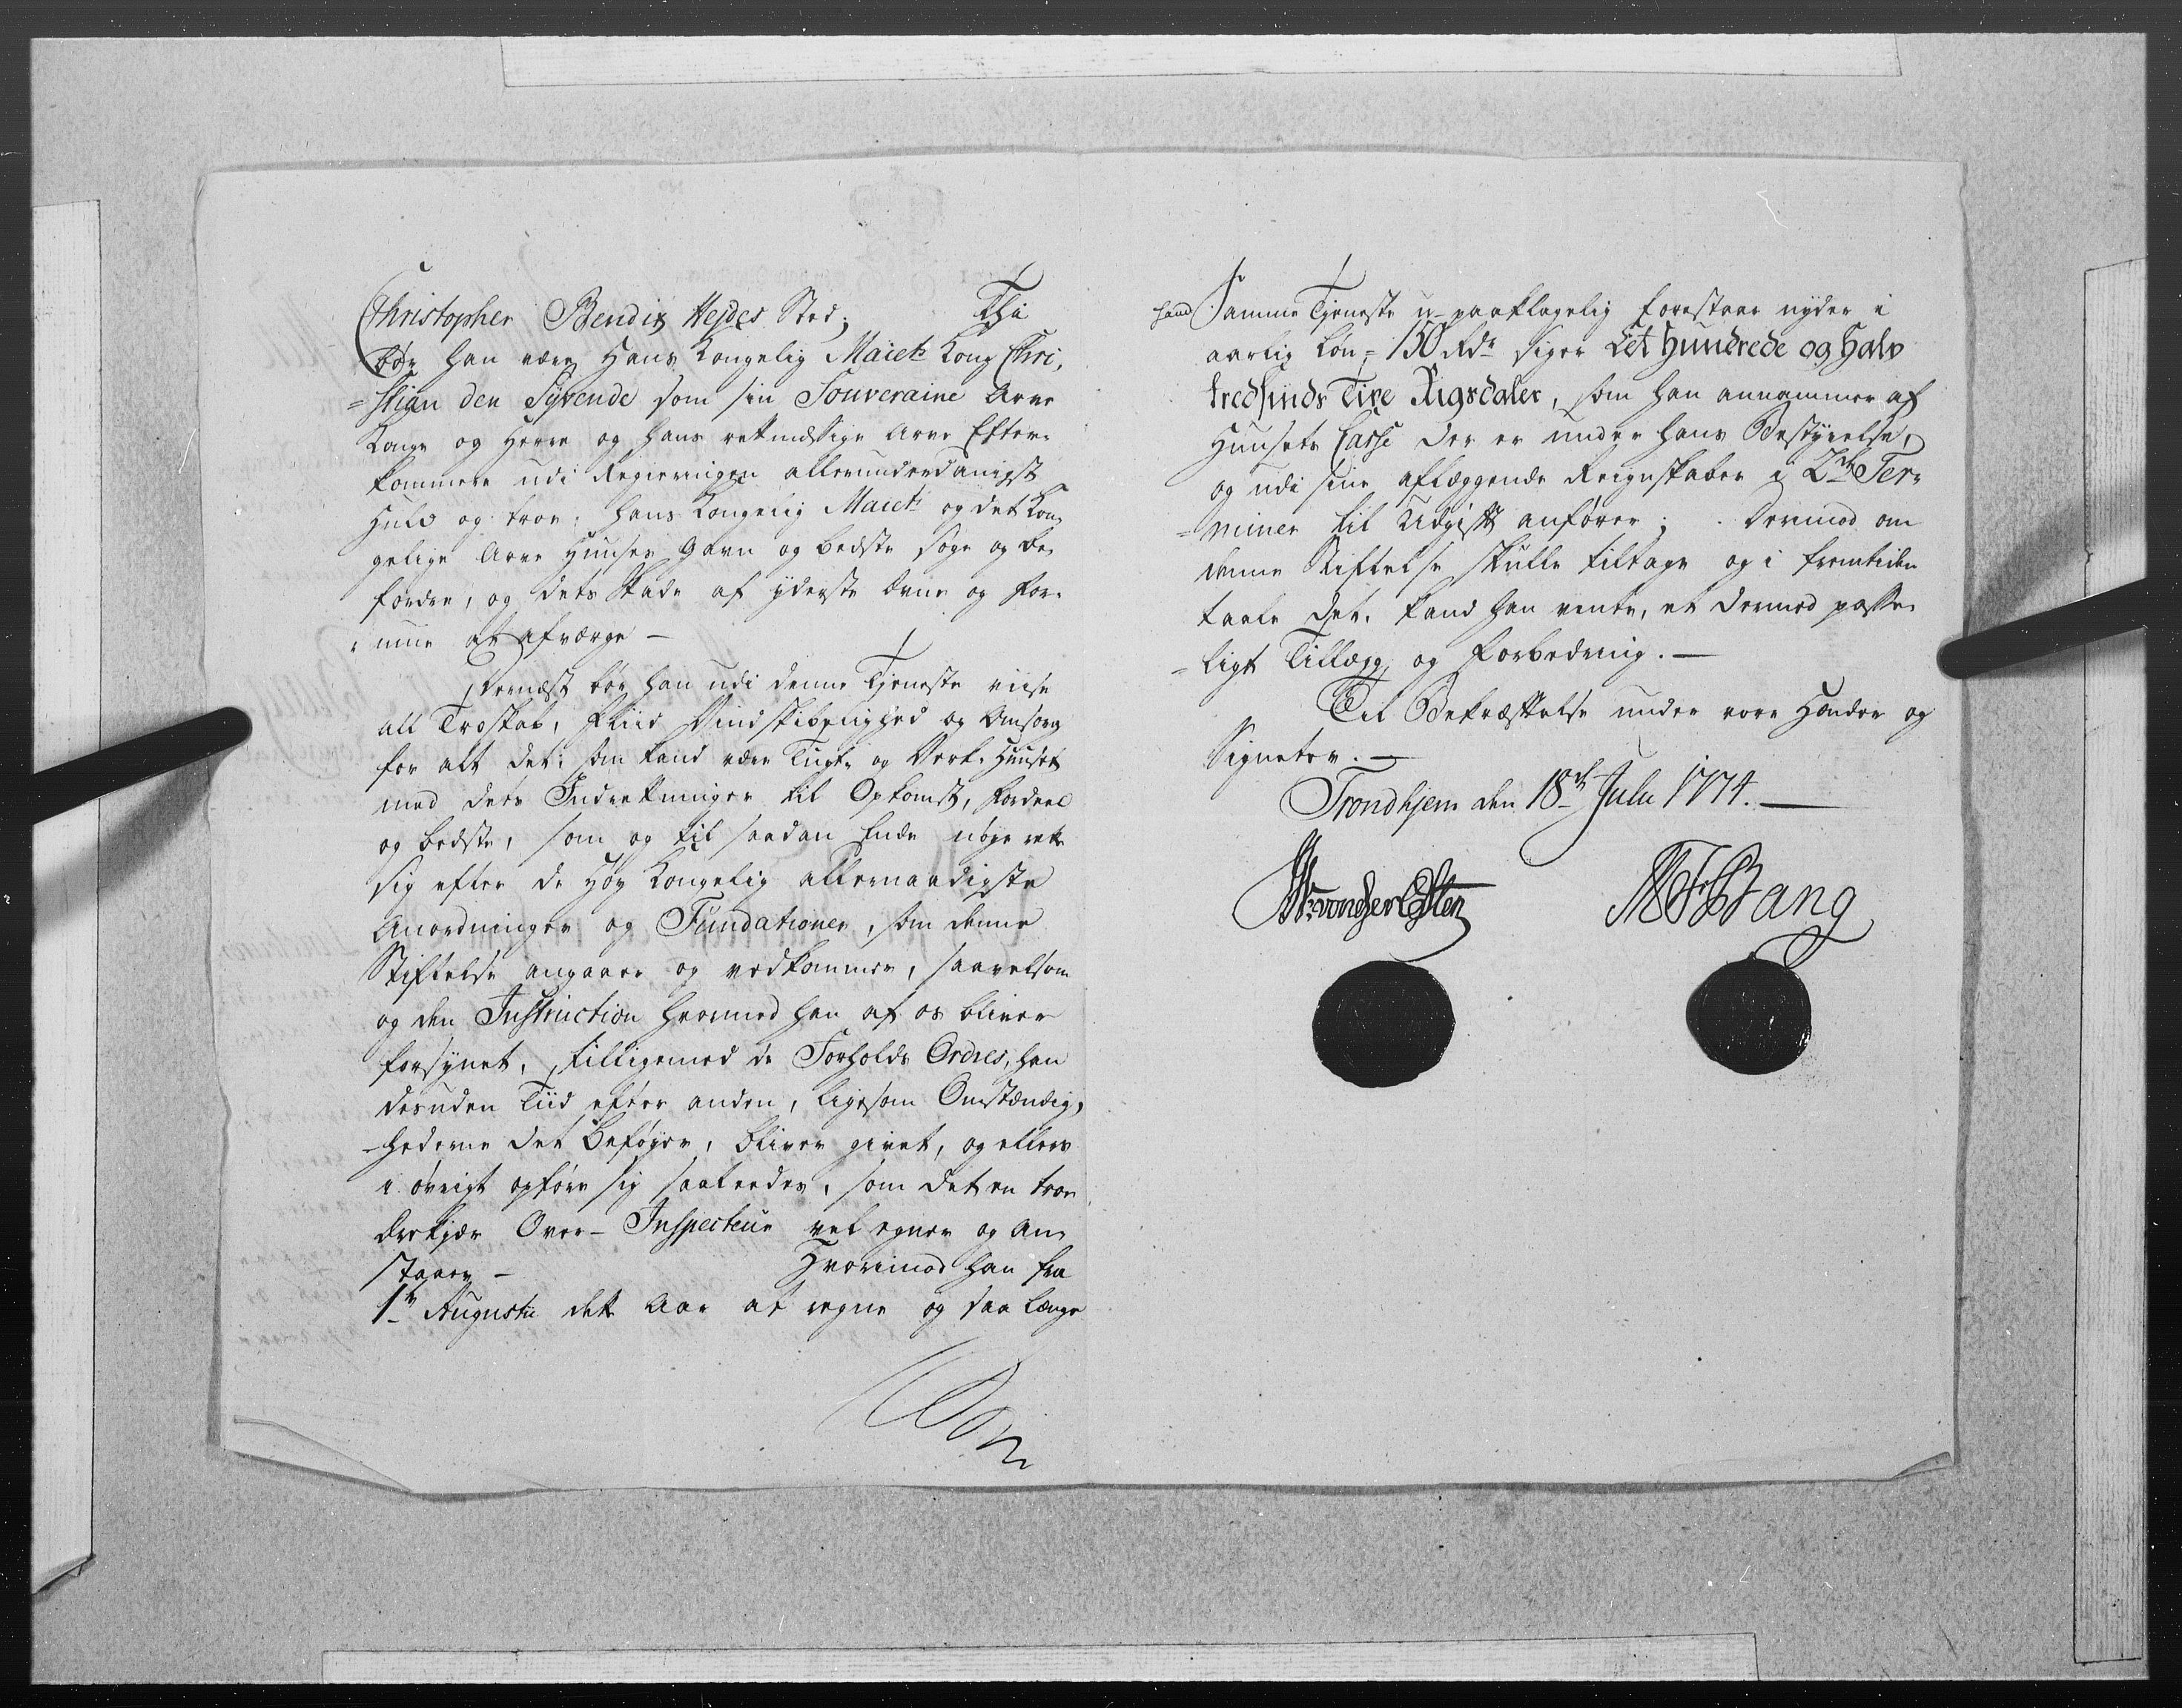 Christopher Bendix Hejdes Sted; Thi
bør han være Hans Kongelig Maiets Kong Chri-
=stian den Syvende som sin Souveraine Arve
Konge og Herre og hans retmæssige Arve Efter-
kommere udi Regieringen allerunderdanigst
Huld og troe; hans Kongelig Maiets og det Kon-
gelige Arve Huuses Gavn og bedste søge og be-
fordre, og dets Skade af yderste Ævne og For-
mue at afværge —
Dernæst bør han udi denne Tjeneste viise
all Troskab, Fliid Vindskibelighed og Omsorg
for alt det, som kand være Tugt- og Verk-Huuset
med dets Indretninger til Opkomst, Fordeel
og bedste, som og til saadan Ende nøye rette
sig efter de Høy Kongelig allernaadigste
Anordninger og Fundationer, som denne
Stiftelse angaaer og vedkommer, saavelsom
og den Instruction hvormed han af os bliver
forsynet, tilligemed de Forholds Ordres, han
desuden Tiid efter anden, ligesom Omstændig-
-hederne det Beføyer, bliver givet, og ellers
i øvrigt opføre sig saaledes, som det en troe
Over-Inspecteur vel egner og an-
staaer — Hvorimod han fra
1te Augusti dette Aar at regne og saa længe
hand Samme Tjeneste u-paaklagelig forestaar nyder i
aarlig Løn, = 150 Rdr siger Eet Hundrede og Halv
tredsinds Tive Rigsdaler, som han annammer af
Huusets Casse der er under hans Bestyrelse,
og udi sine aflæggende Reignskaber i 2de Ter-
=miner til Udgift anfører; Dermed om
denne Stiftelse skulle tiltage og i fremtiden
taale det, kand han vente, et dermed passe-
=ligt Tillæg og Forbedring. —
Til Bekræftelse under vore Hænder og
Signeter. —
Trondhjem den 18de Julii 1774. —
MFBang